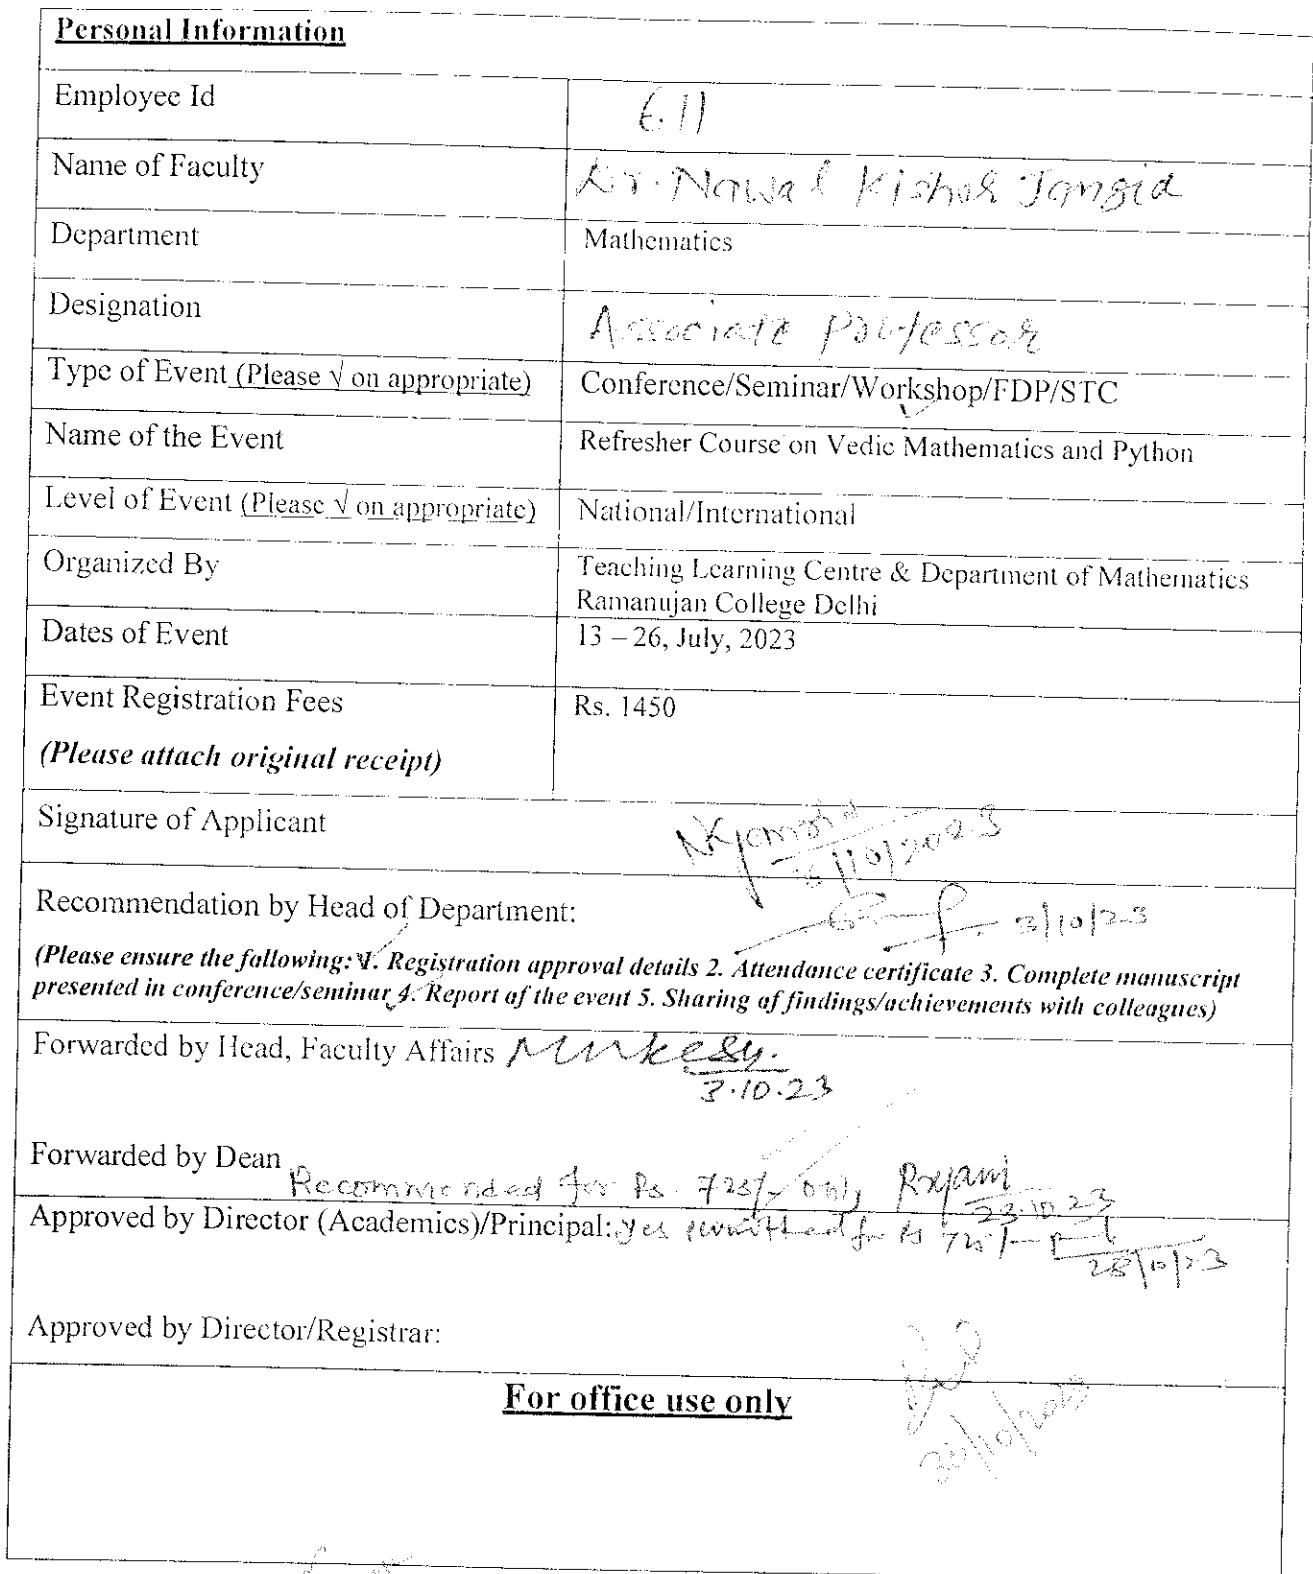 Personal Information
Employee Id
Name of Faculty Dr. Nawal Kishor Jangid
Department Mathematics
Designation Associate Professor
Type of Event (Please √ on appropriate) Conference/Seminar/Workshop/FDP/STC
Name of the Event Refresher Course on Vedic Mathematics and Python
Level of Event (Please √ on appropriate) National/International
Organized By Teaching Learning Centre & Department of Mathematics
Ramanujan College Delhi
Dates of Event 13 – 26, July, 2023
Event Registration Fees Rs. 1450
(Please attach original receipt)
Signature of Applicant NKJangid
/10/2023
Recommendation by Head of Department: 3/10/23
(Please ensure the following: 1. Registration approval details 2. Attendance certificate 3. Complete manuscript
presented in conference/seminar 4. Report of the event 5. Sharing of findings/achievements with colleagues)
Forwarded by Head, Faculty Affairs Mukesh
3.10.23
Forwarded by Dean
Recommended for Rs. 725/- only
23.10.23
Approved by Director (Academics)/Principal: yes permitted for Rs 725/-
28/10/23
Approved by Director/Registrar:
For office use only
30/10/2023